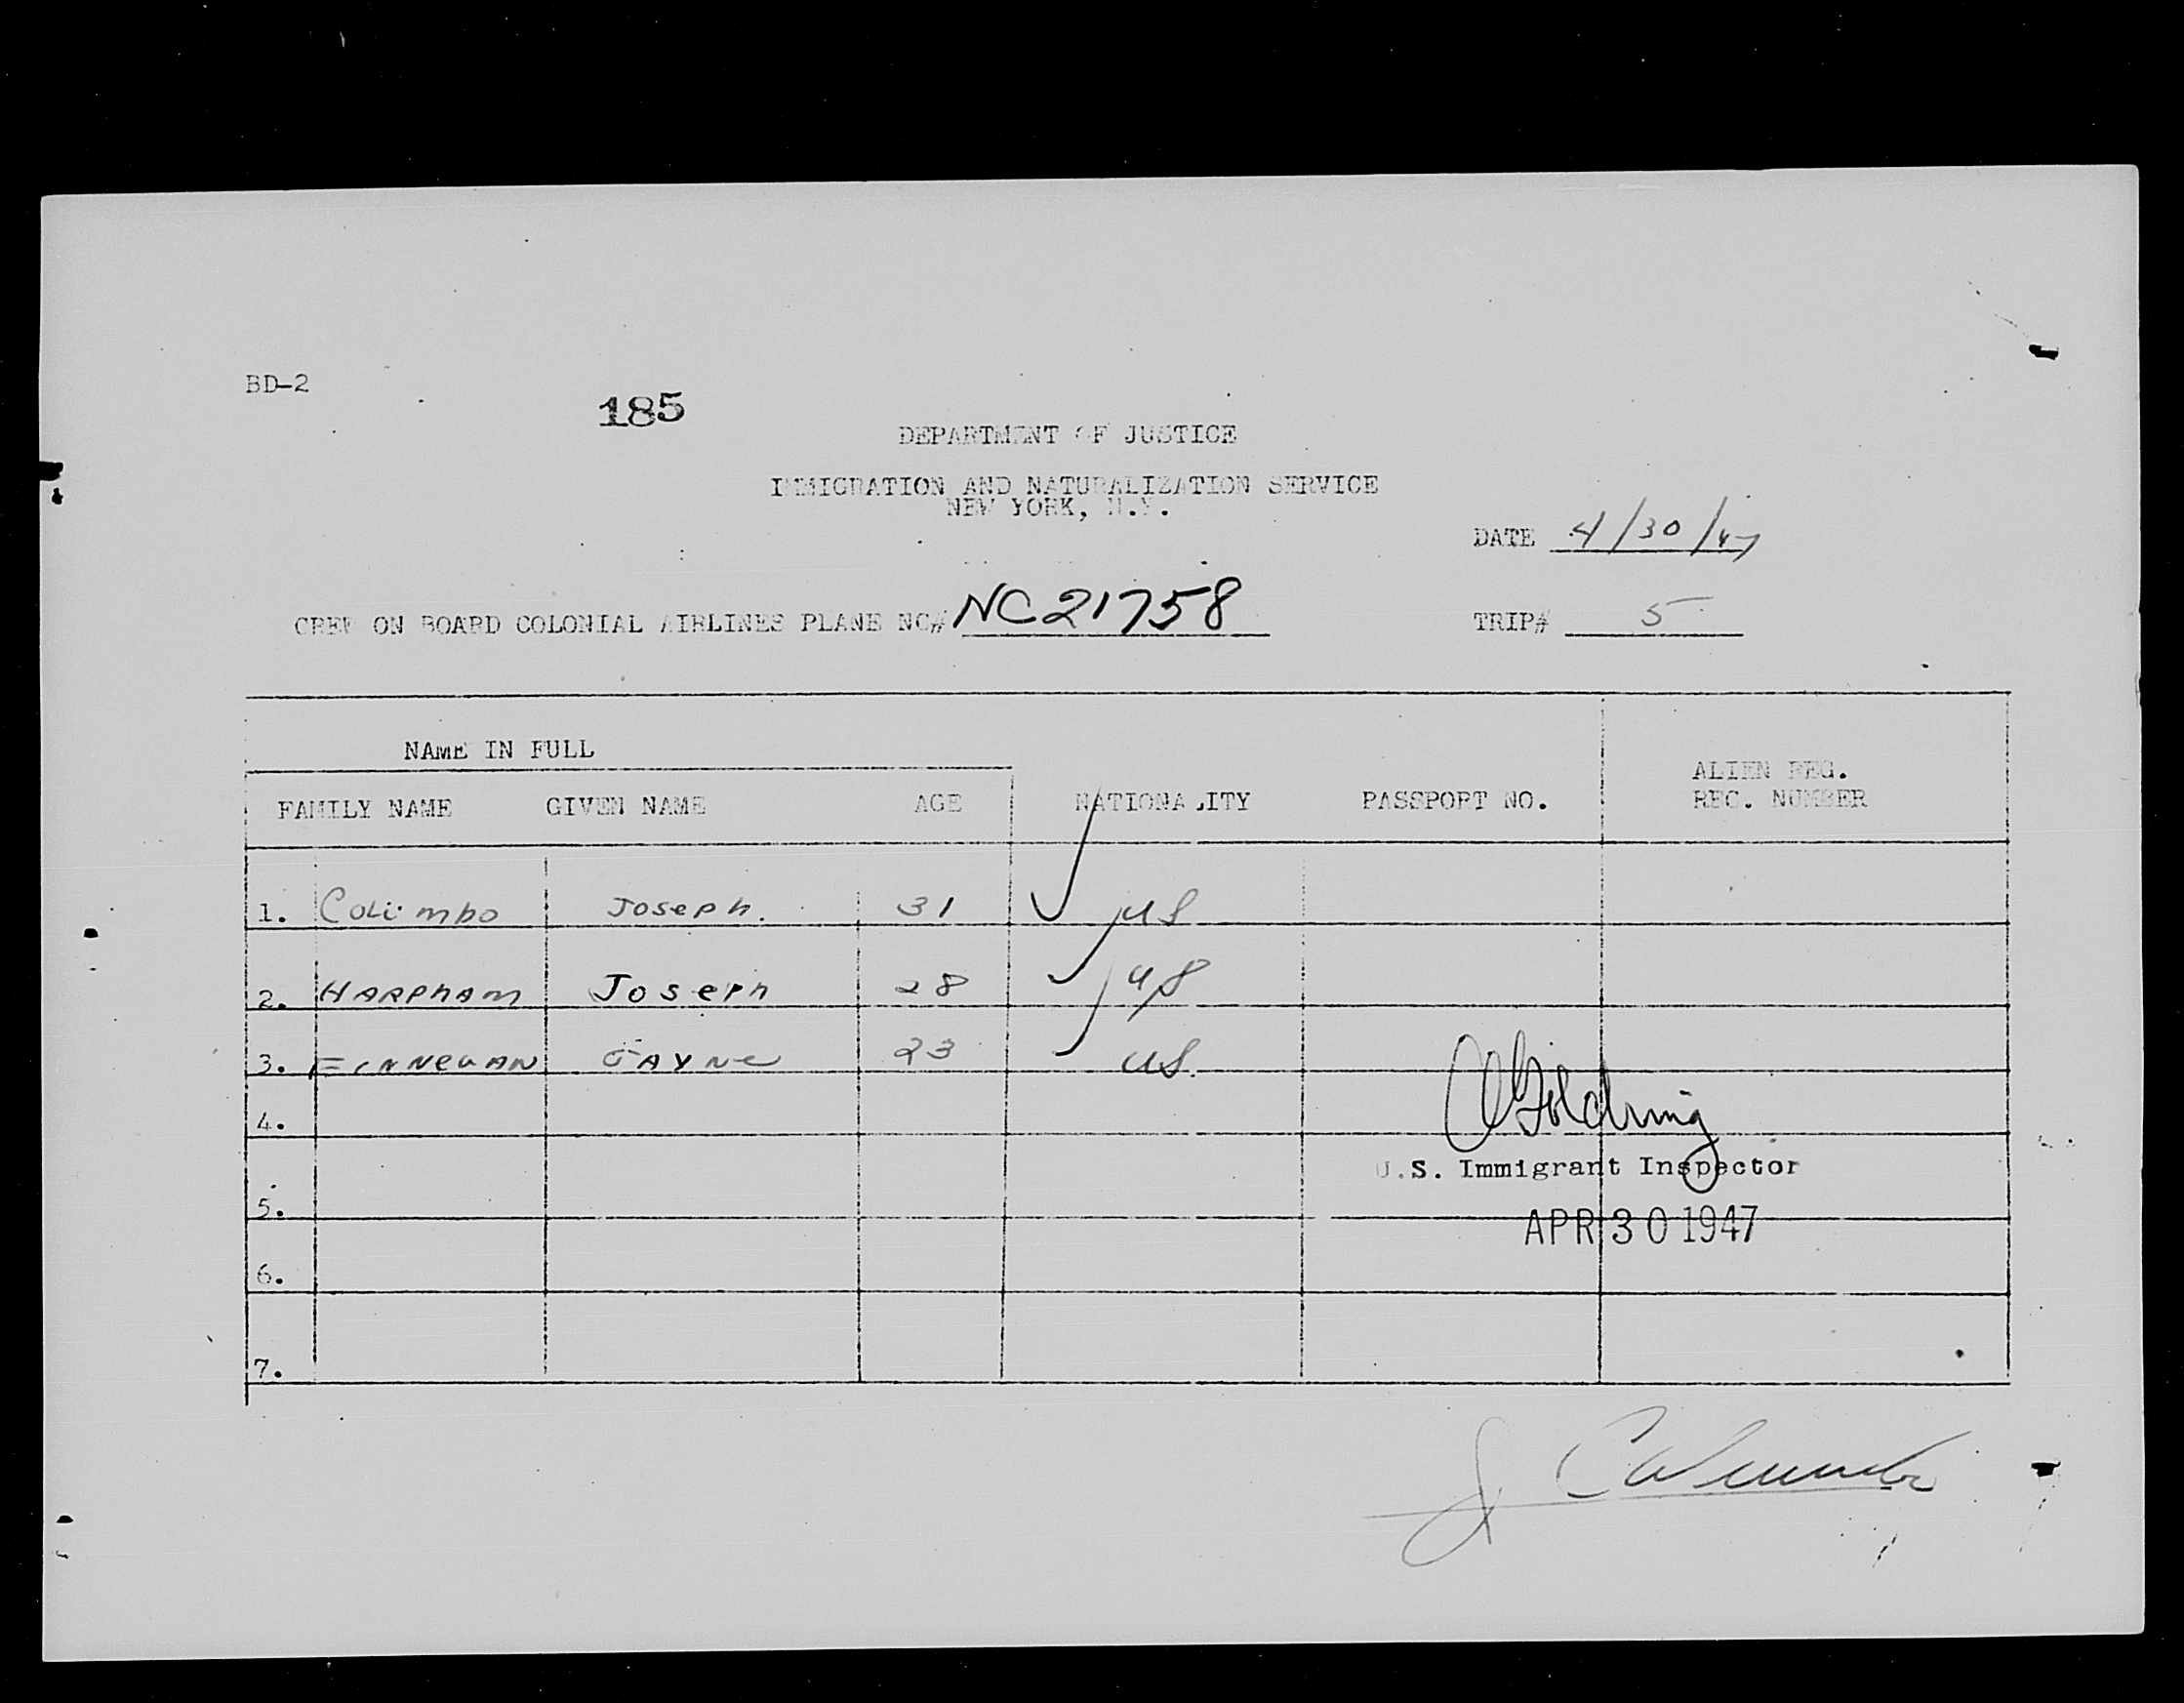 BD-2
185
DEPARTMENT OF JUSTICE
IMMIGRATION AND NATURALIZATION SERVICE
NEW YORK, N.Y.
DATE 4/30/47
CREW ON BOARD COLONIAL AIRLINES PLANE NC# NC21758 TRIP# 5
NAME IN FULL
FAMILY NAME GIVEN NAME AGE NATIONALITY PASSPORT NO. ALIEN REG. REC. NUMBER
1. Columbo Joseph. 31 US
2. HARPHAM Joseph 28 US
3. FINNEGAN JAYNE 23 US.
4.
Golding
U.S. Immigrant Inspector
5.
APR 30 1947
6.
7.
J Columbo